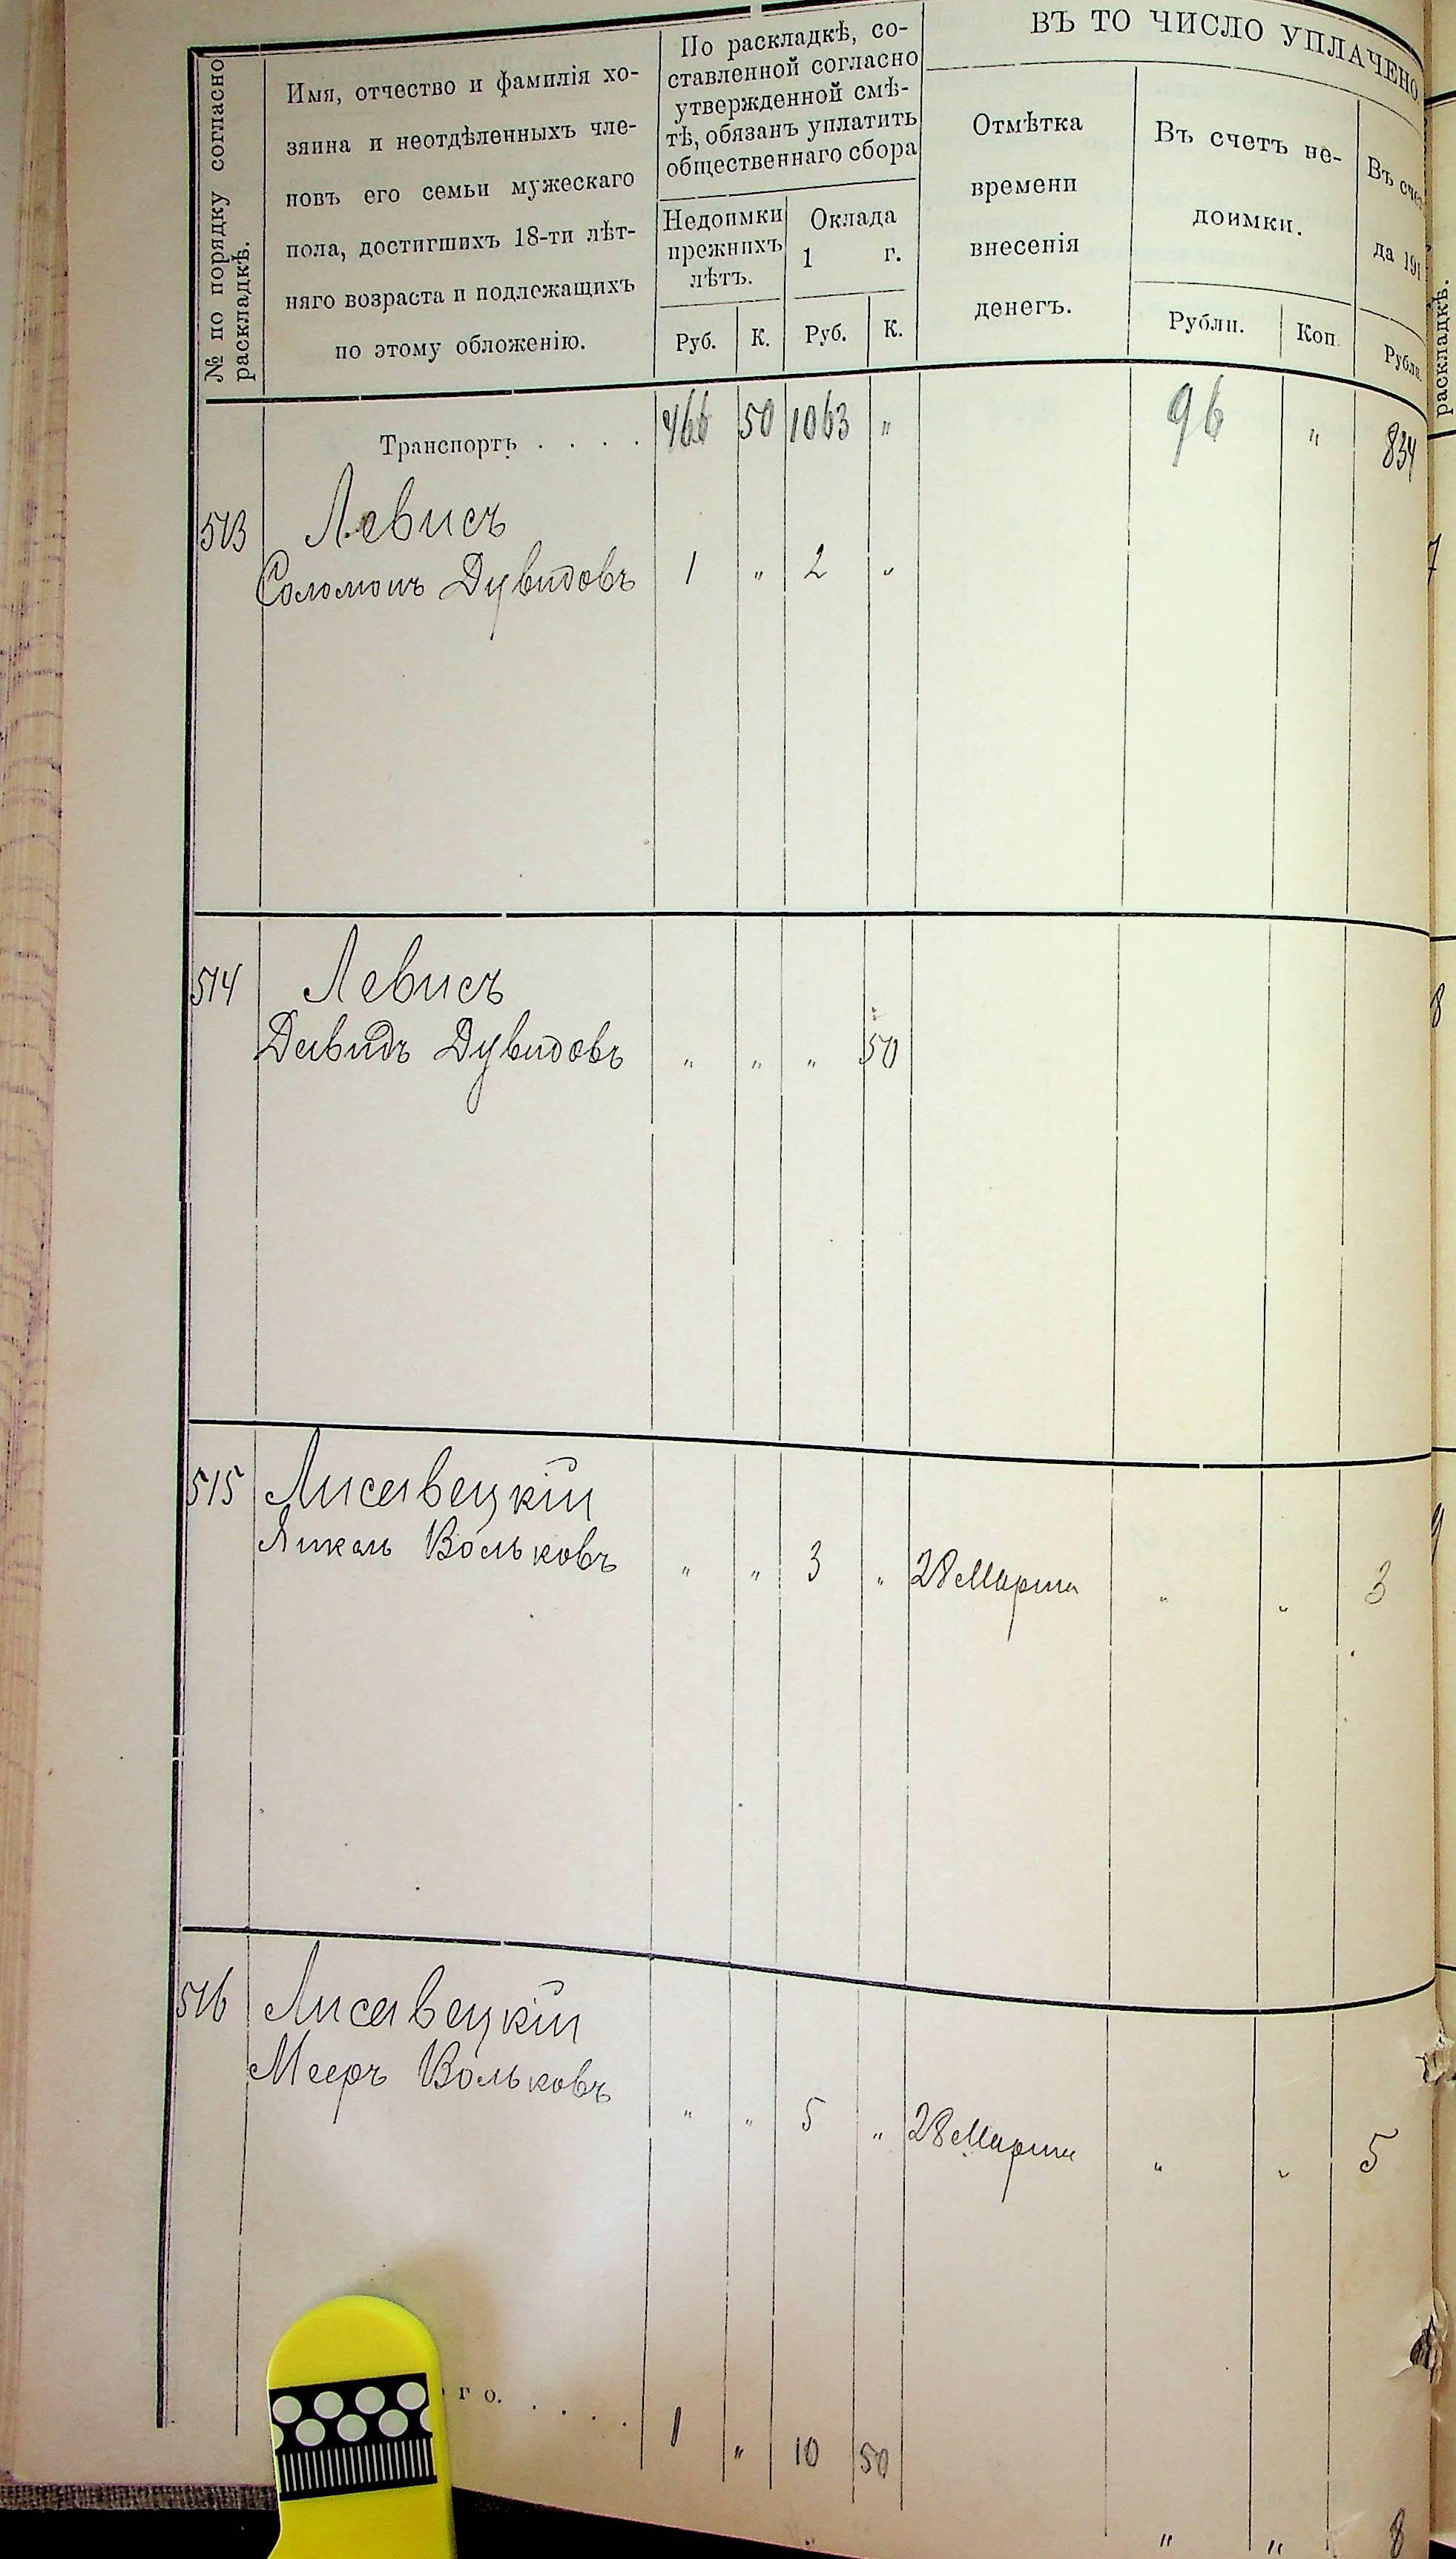 № по порядку согласно
раскладкѣ.
Имя, отчество и фамилія хо-
зяина и неотдѣленныхъ чле-
новъ его семьи мужескаго
пола, достигшихъ 18-ти лѣт-
няго возраста и подлежащихъ
по этому обложенію.
По раскладкѣ, со-
ставленной согласно
утвержденной смѣ-
тѣ, обязанъ уплатить
общественнаго сбора
Недоимки
прежнихъ
лѣтъ.
Оклада
1 г.
Руб. К. Руб. К.
ВЪ ТО ЧИСЛО УПЛАЧЕНО
Отмѣтка
времени
внесенія
денегъ.
Въ счетъ не-
доимки.
Рубли. Коп.
Въ сче
да 191
Рубли.
раскладкѣ.
Транспортъ . . . . 466 50 1063 " 96 " 834
513 Левисъ
Соломонъ Дувидовъ 1 " 2 "
7
514 Левисъ
Давидъ Дувидовъ " " " 50
8
515 Лисавецкій
Янкель Вольковъ " " 3 " 28 Марта " " 3
9
516 Лисавецкій
Мееръ Вольковъ " " 5 " 28 Марта " " 5
го. . . . . 1 " 10 50
" " 8